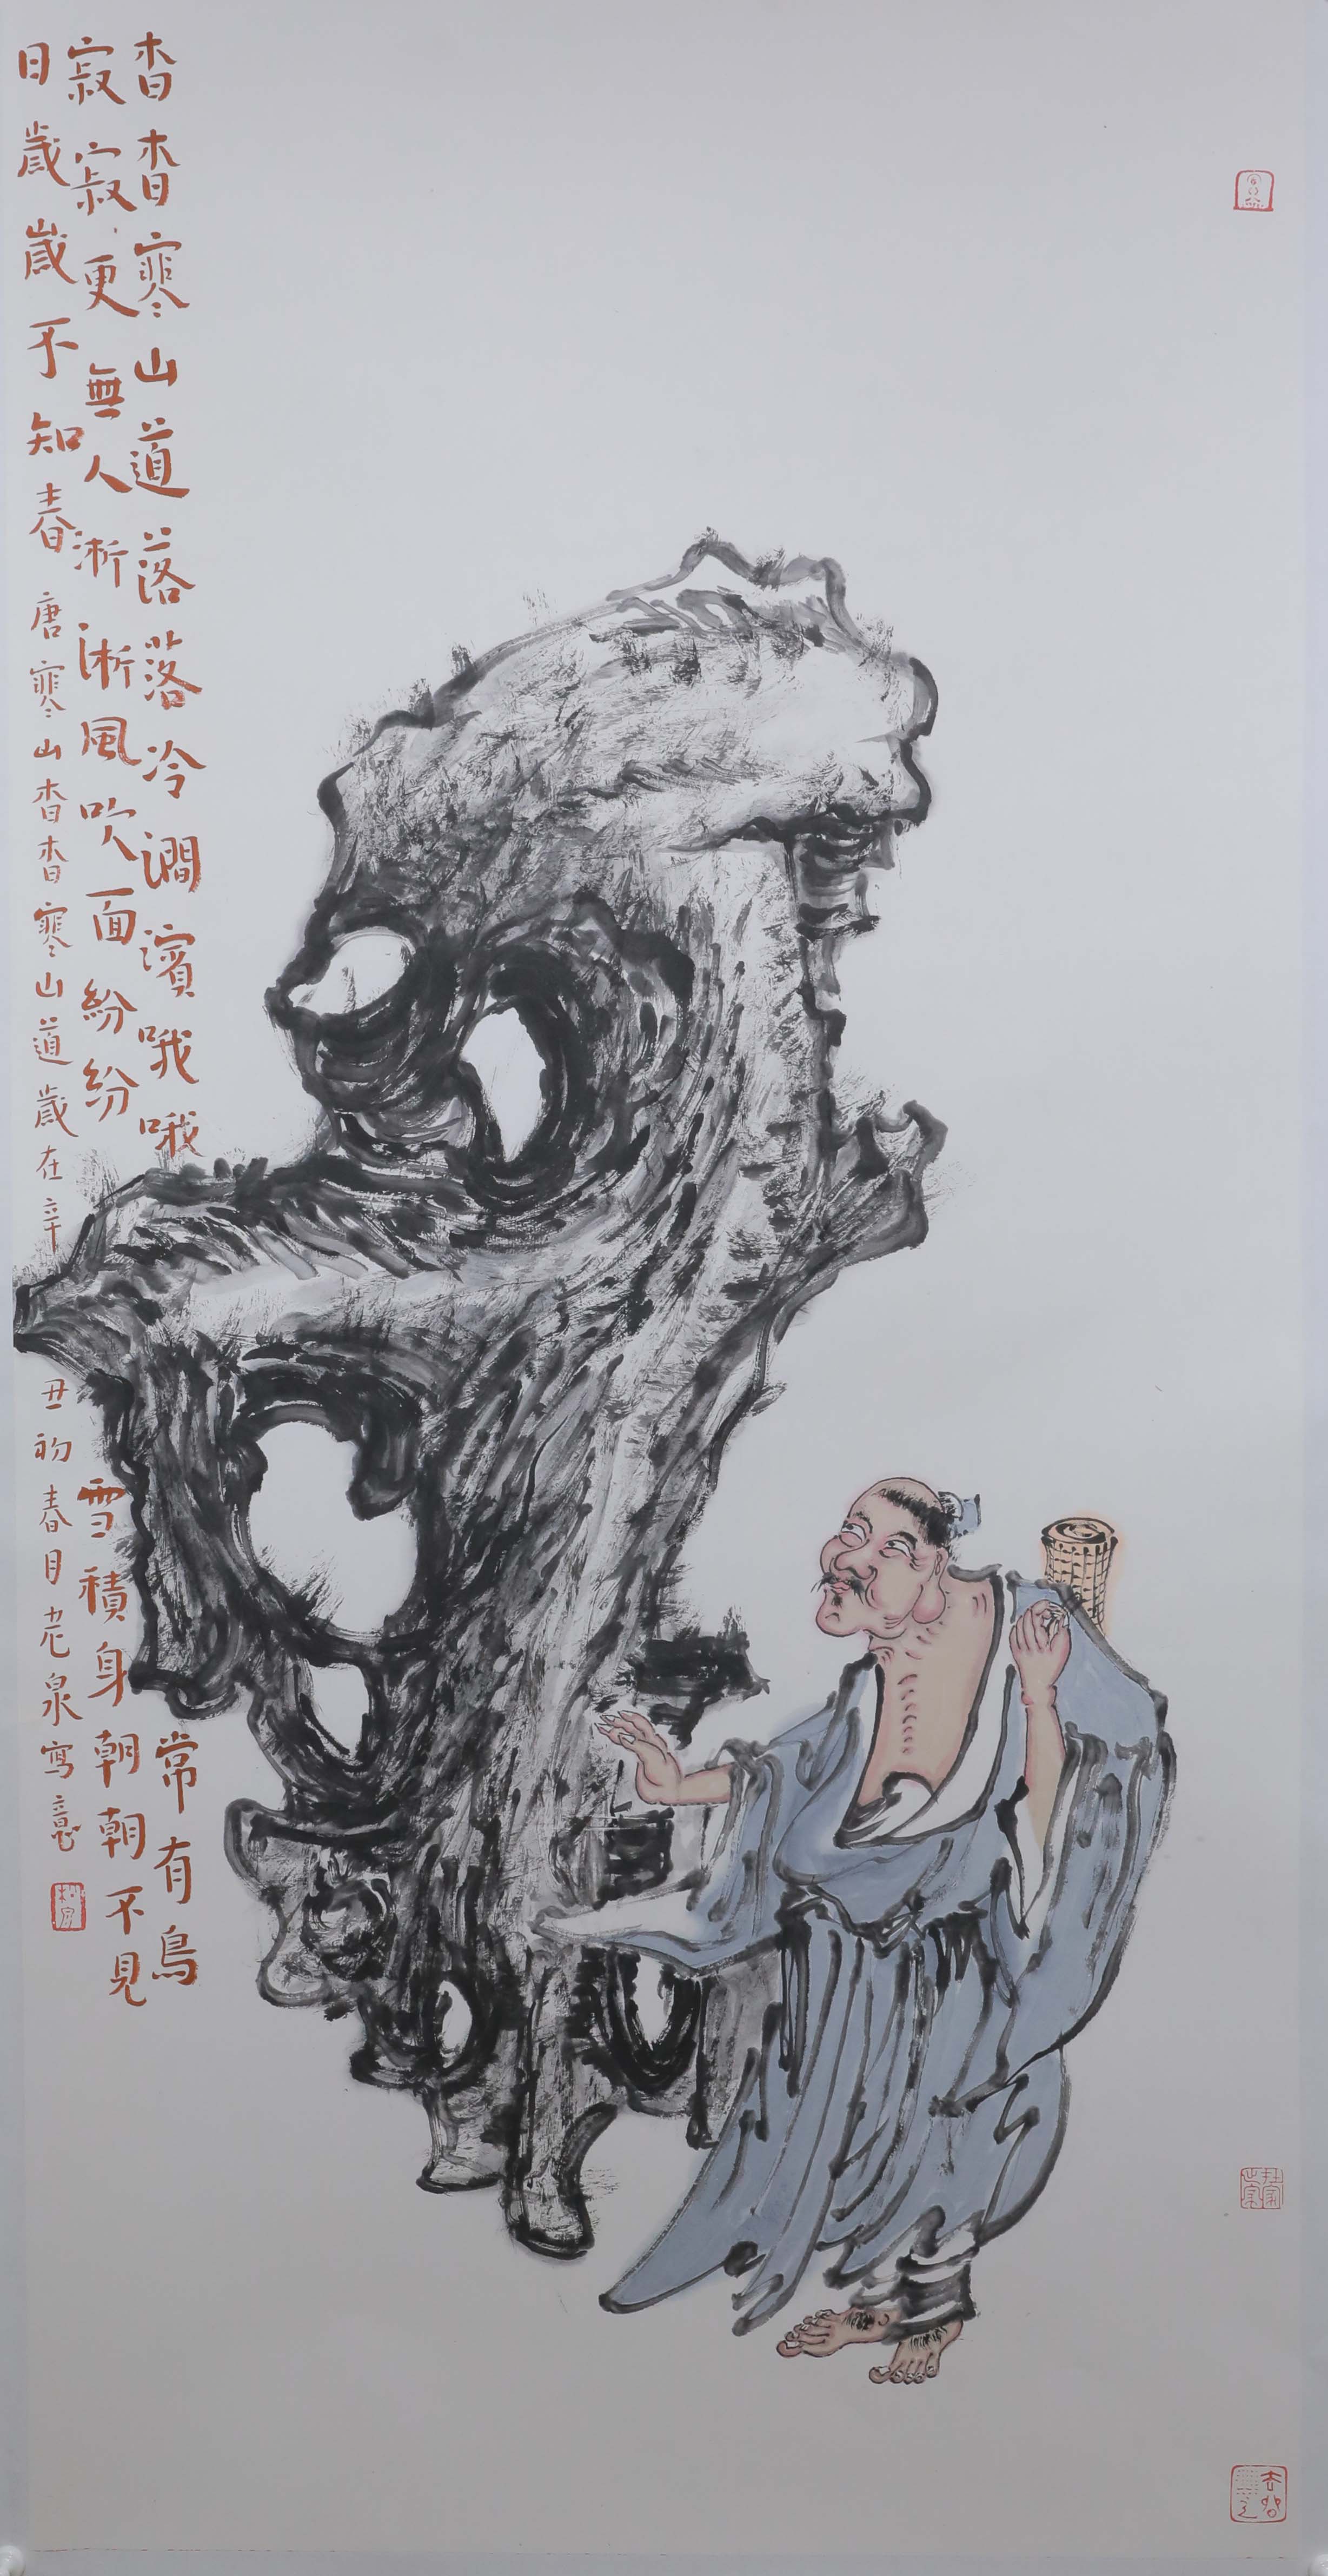 杳杳寒山道落落冷澗濱哦哦常有鳥
寂寂更無人淅淅風吹面紛紛雪積身朝朝不見
日歲歲不知春 唐寒山杳杳寒山道歲在辛丑初春月老泉寫意